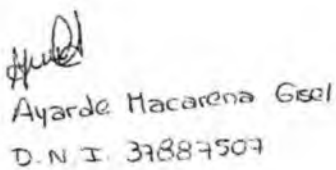 Ayarde Macarena Gisel
D.N.I. 37887507